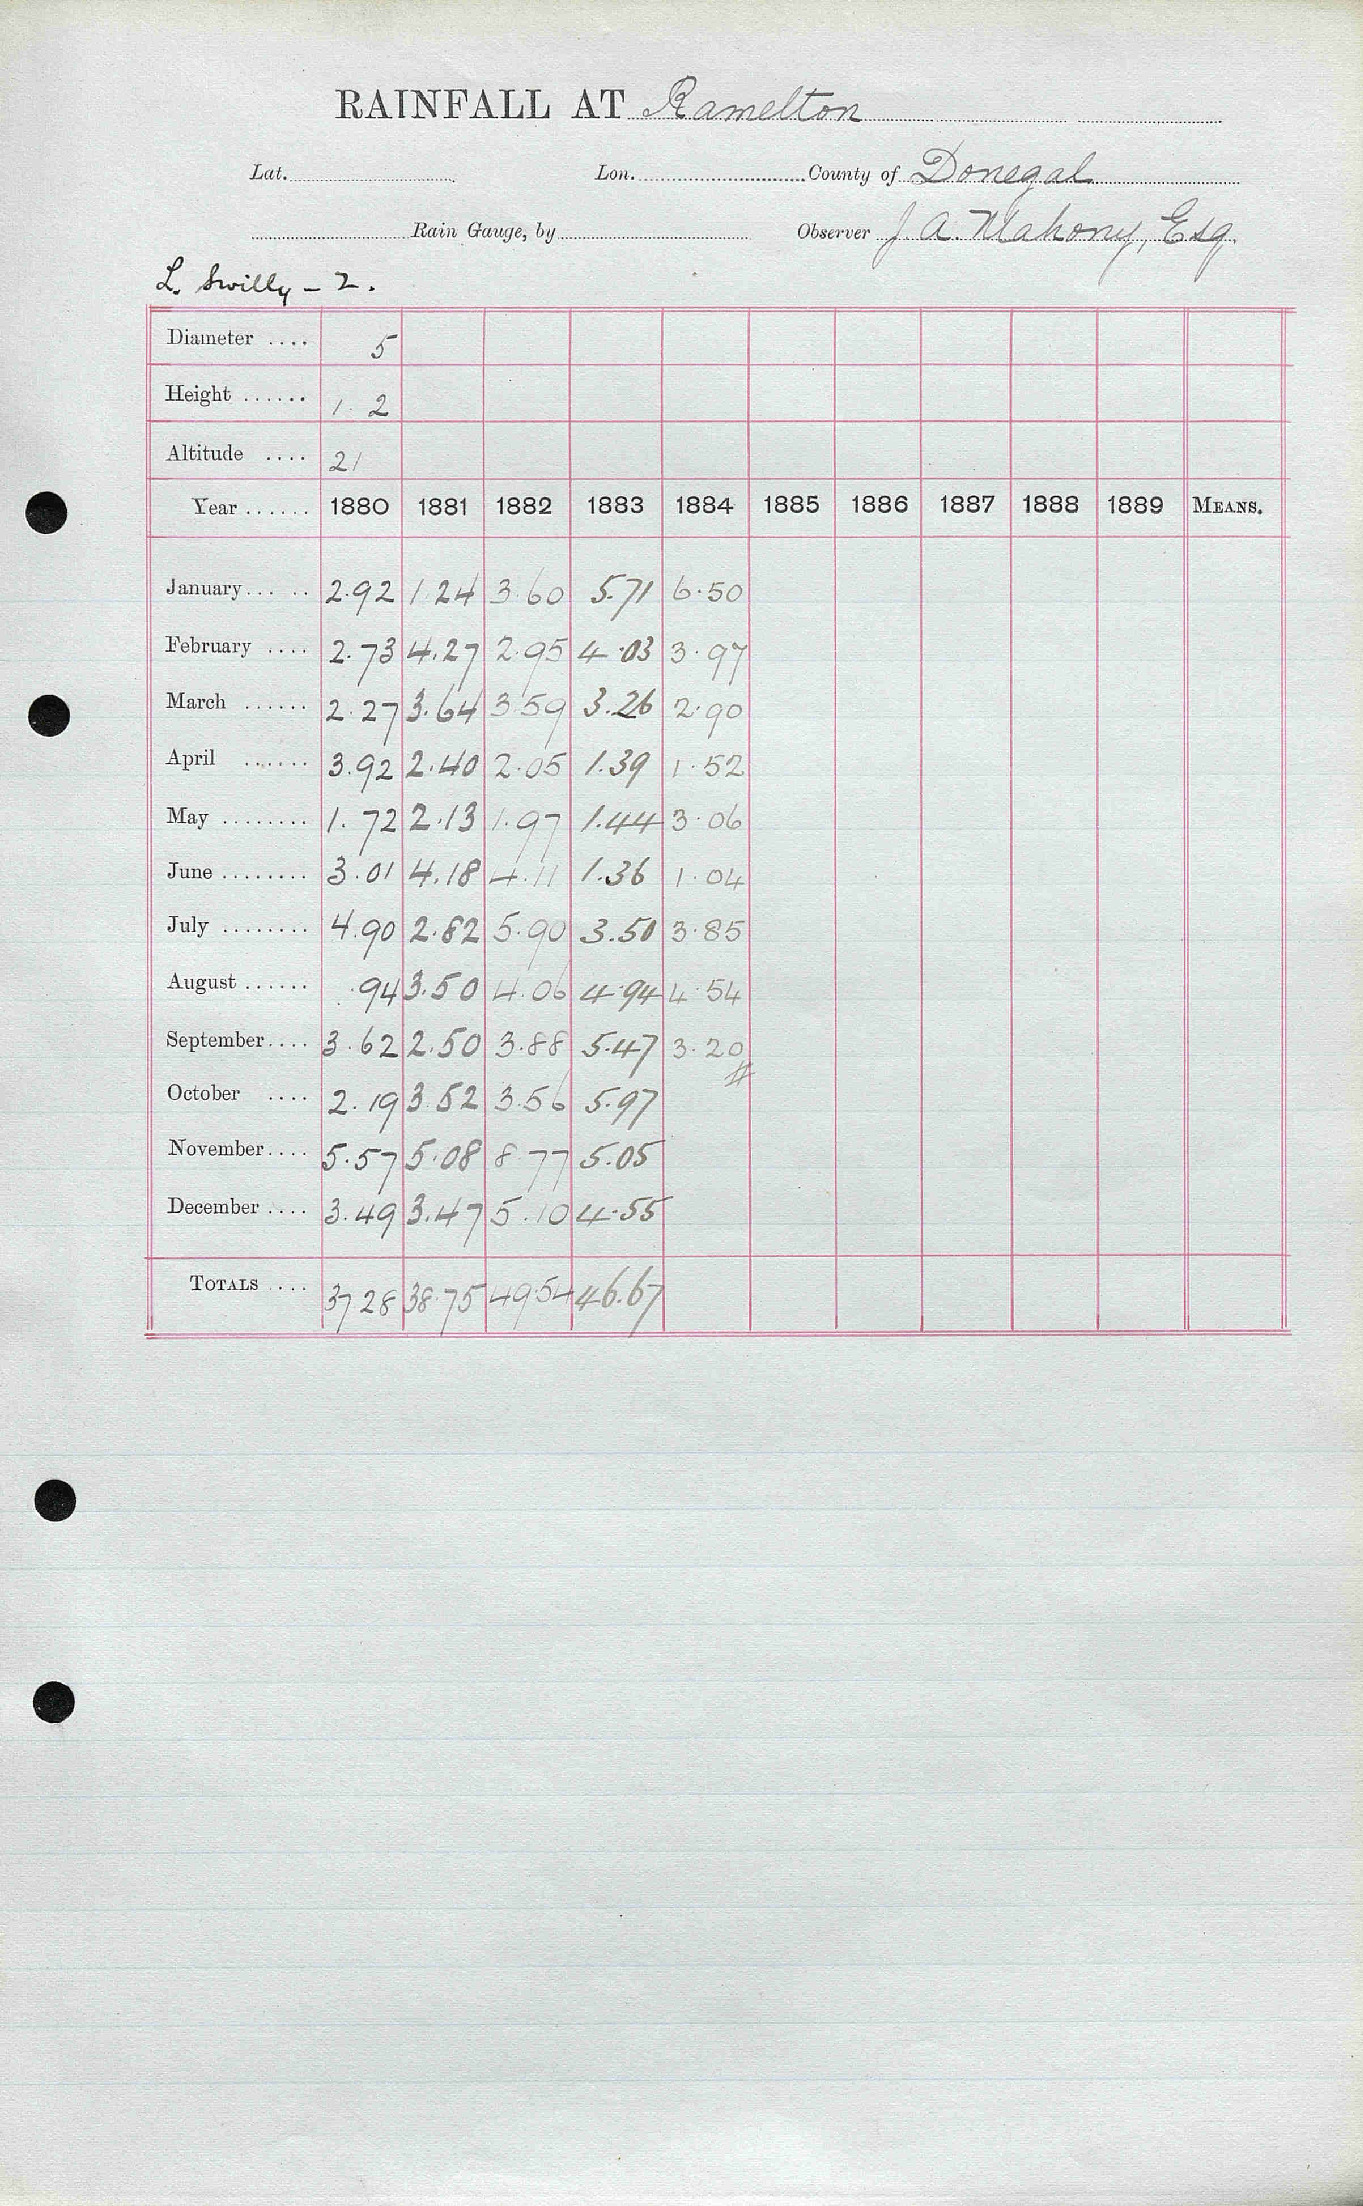 RAINFALL AT Ramelton
Lat. Lon. County of Donegal
Rain Gauge, by Observer J. A. Mahony, Esq.
L. Swilly - 2.
Diameter .... 5
Height ...... 1. 2
Altitude .... 21
Year ...... 1880 1881 1882 1883 1884 1885 1886 1887 1888 1889 MEANS.
January ...... 2.92 1.24 3.60 5.71 6.50
February .... 2.73 4.27 2.95 4.03 3.97
March ...... 2.27 3.64 3.59 3.26 2.90
April ...... 3.92 2.40 2.05 1.39 1.52
May ........ 1.72 2.13 1.97 1.44 3.06
June ........ 3.01 4.18 4.11 1.36 1.04
July ........ 4.90 2.82 5.90 3.50 3.85
August ...... .94 3.50 4.06 4.94 4.54
September .... 3.62 2.50 3.88 5.47 3.20
October .... 2.19 3.52 3.56 5.97
November .... 5.57 5.08 8.77 5.05
December .... 3.49 3.47 5.10 4.55
TOTALS .... 37 28 38.75 49.54 46.67